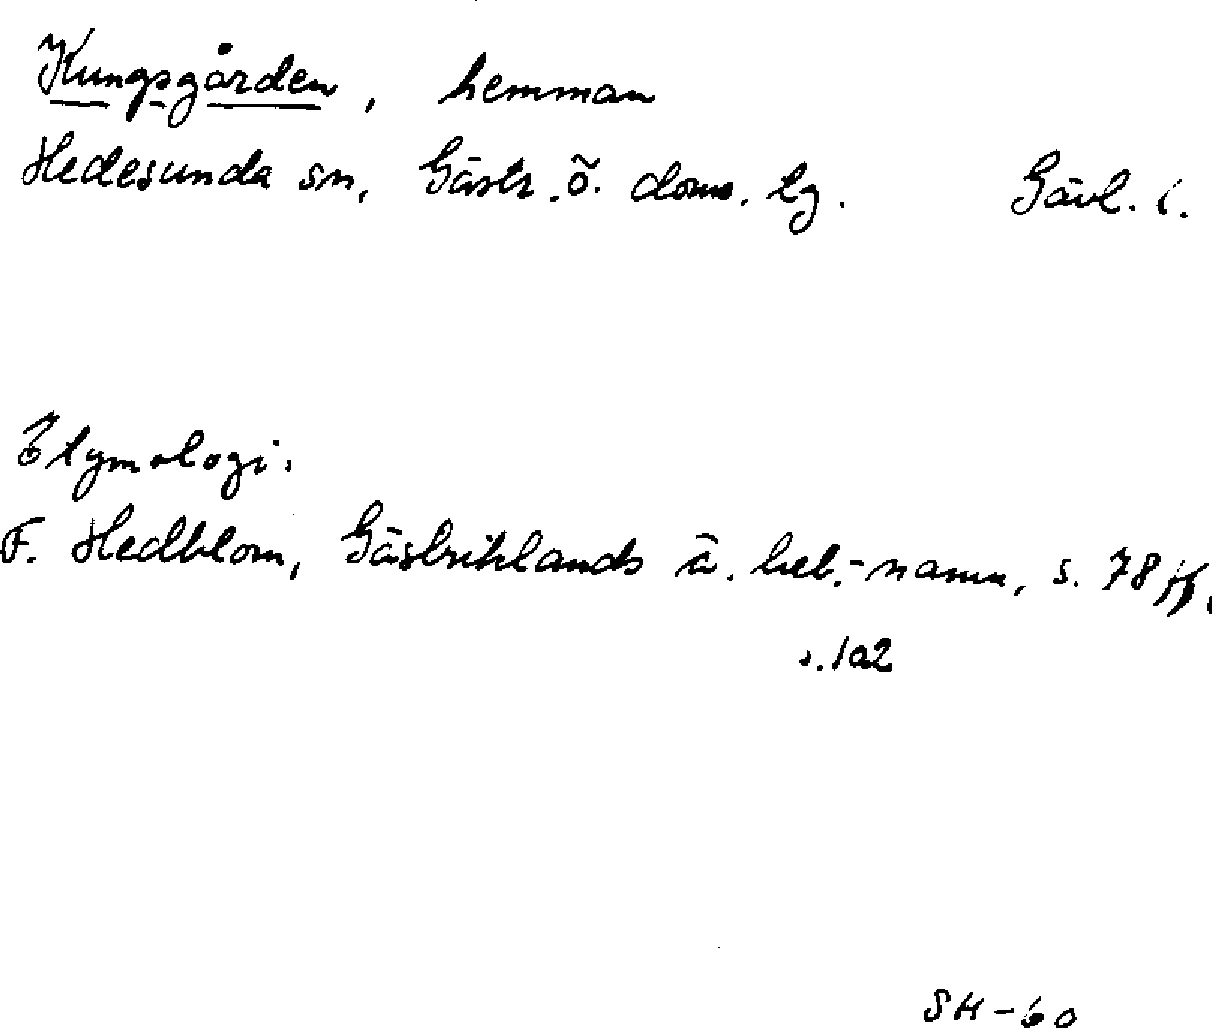 Kungsgården, hemman
Hedesunda sn, Gästr. ö. doms. lg. Gävl. l.
Etymologi.
F. Hedblom, Gästriklands ä. beb.-namn, s. 78 ff.
s. 102
SH-60